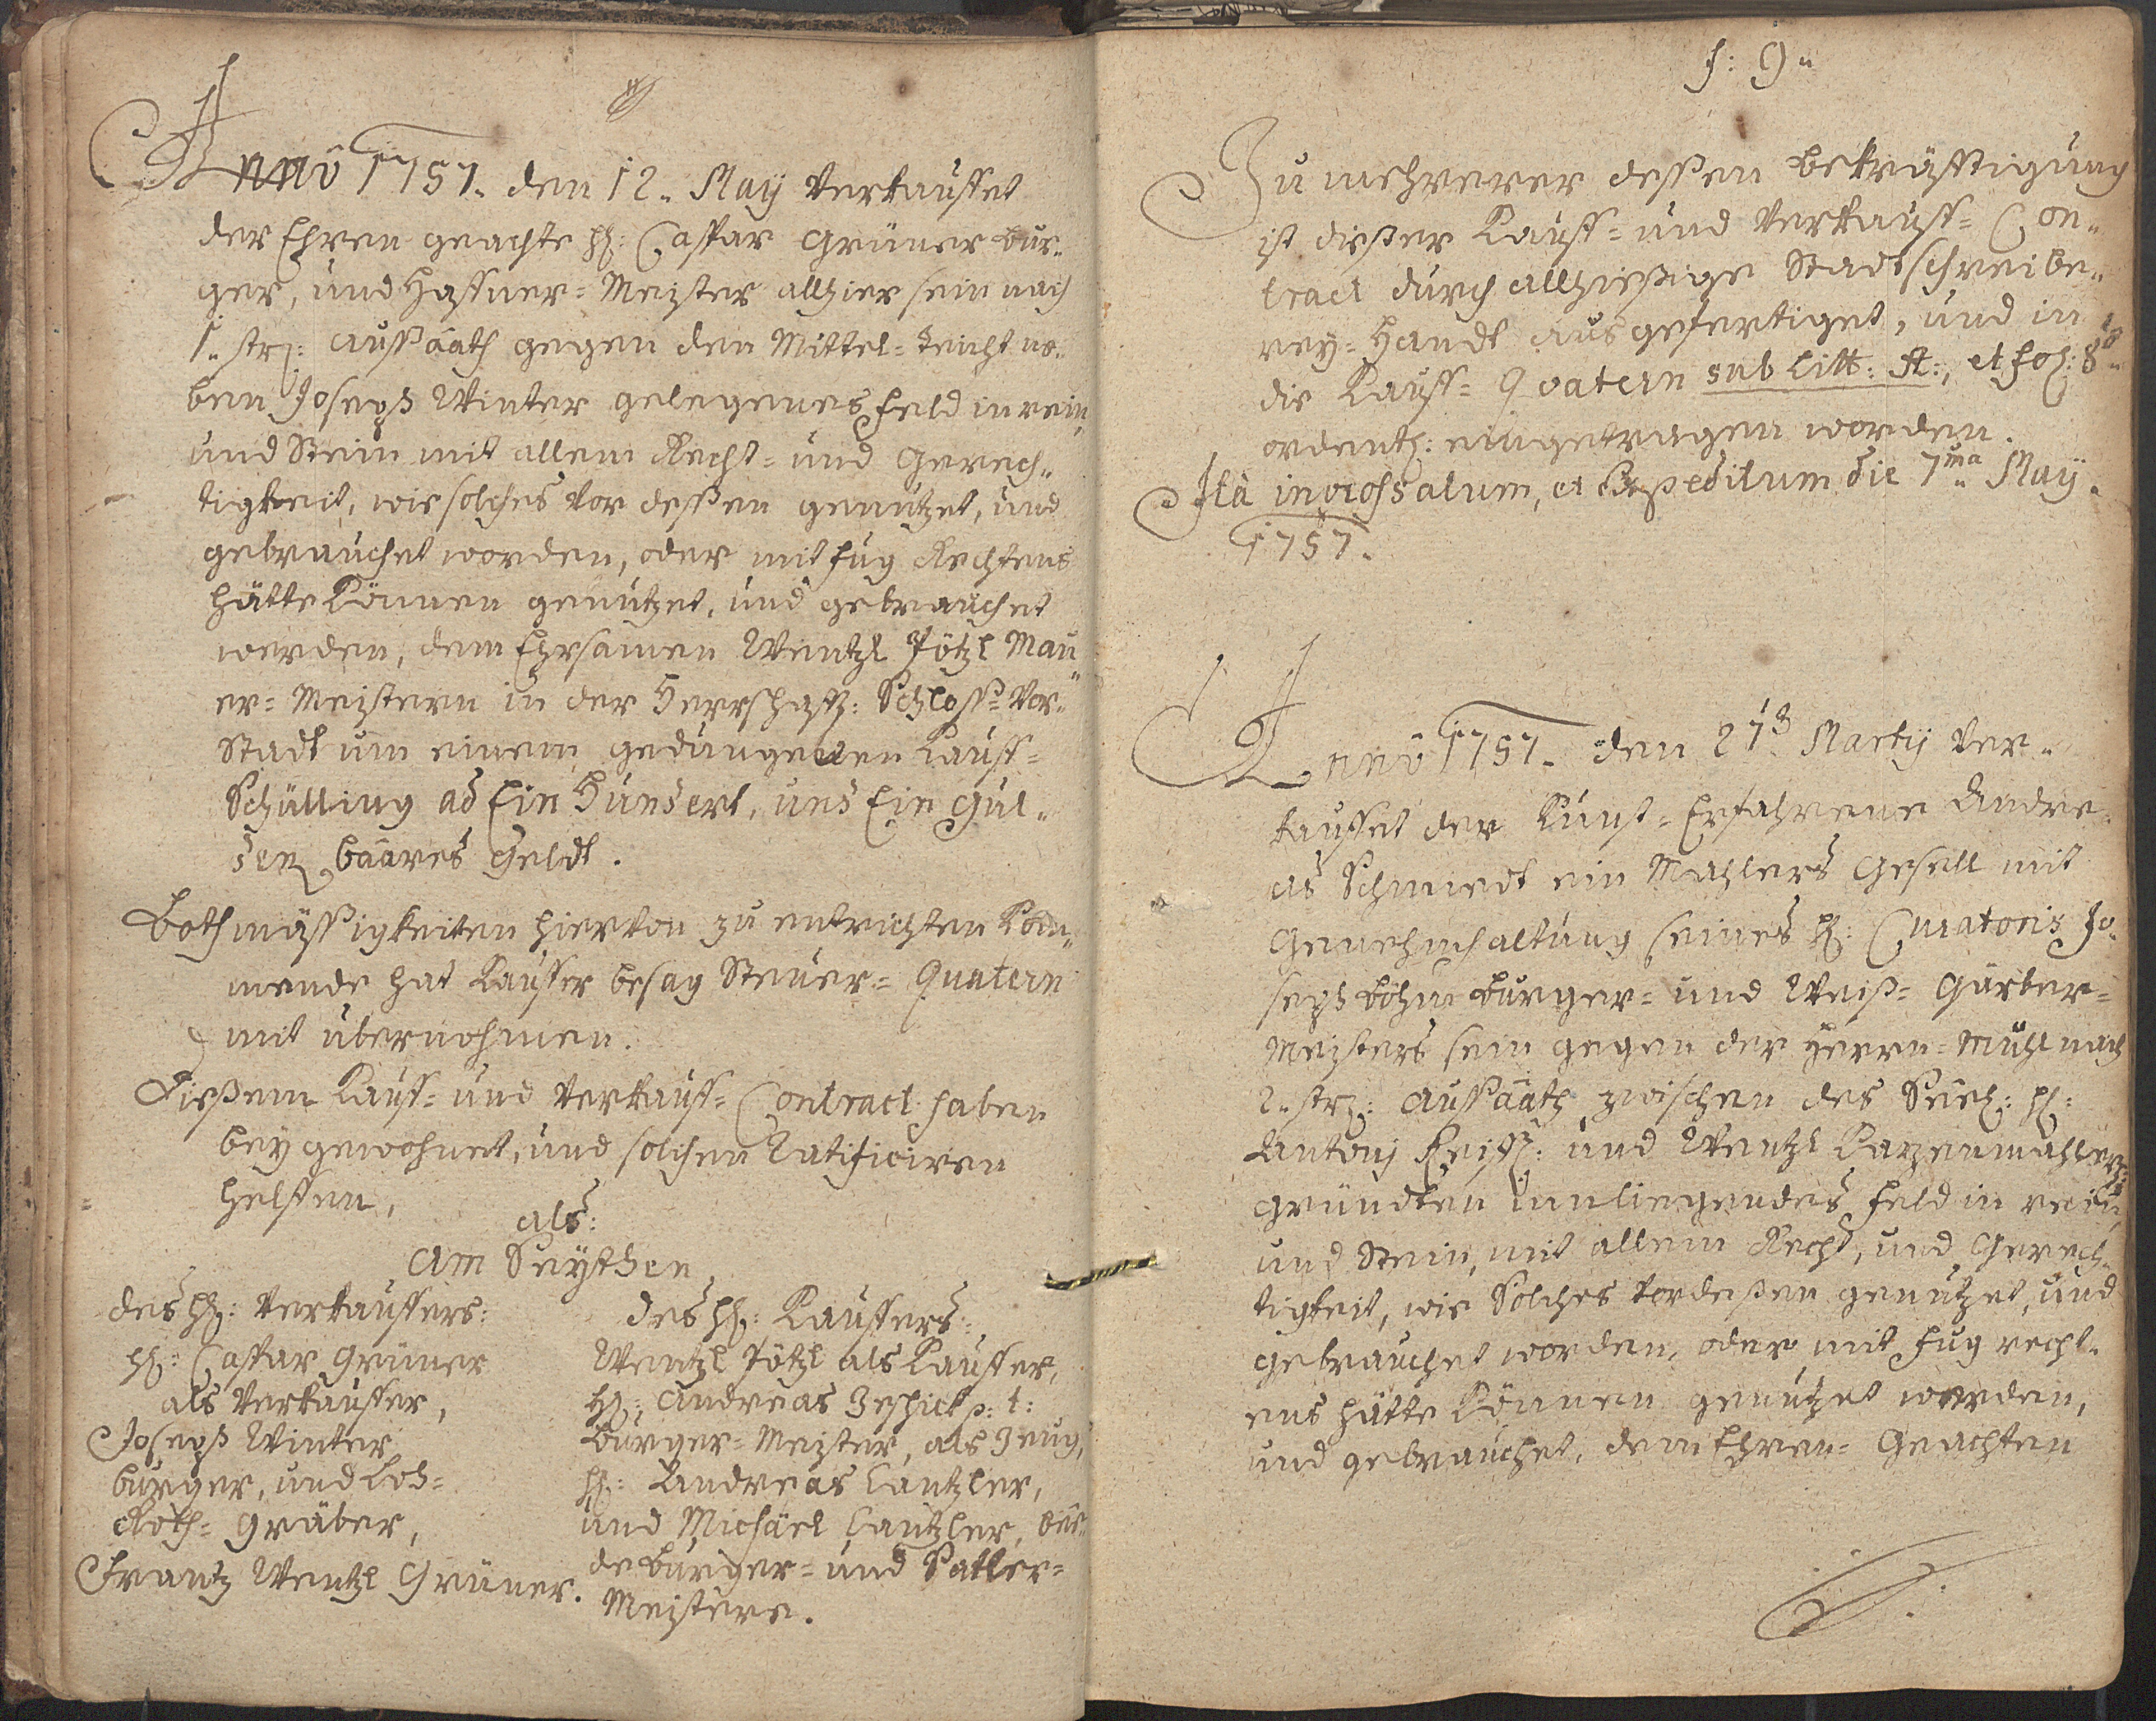 Anno 1757. den 12. May Verkauffet
der Ehren geachte H: Caspar Grüner bur„
ger, und Haffner=Meister allhier sein nach
1. str: aussaath gegen den Mittel=Teicht ne„
ben Joseph Winter gelegenes Feld in rein,
und Stein mit allem Recht= und Gerech„
tigkeit, wie solches vor dessen genutzet, und
gebrauchet worden, oder mit fug Rechtens
hätte Können genutzet, und gebrauchet
werden, dem Ehrsamen Wentzl Pötzl Mau„
er=Meistern in der Herrschaftl: Schloss=Vor„
Stadt um einem gedungenen Kauff=
Schilling ad Ein Hundert, und Ein Gul„
den baares Geldt.
Bothmässigkeiten hiervon zu entrichten Kom„
mende hat Kauffer besag Steuer=Quatern
mit übernohmen.
Diessem Kauff= und Verkauff=Contract haben
bey gewohnet, und solchen Ratificiren
helffen,
als:
Am Seythen
des H: Verkauffers:
H: Caspar Grüner
als Verkauffer,
Joseph Winter
burger, und Loh=
Roth=Gräber,
Frantz Wentzl Grüner.
des H: Kauffers:
Wentzl Pötzl als Kauffer,
H: Andreas Zeschick p: t:
Burger=Meister, als Zeug,
H: Andreas Lantzler,
und Michael Lantzler, bee„
de burger= und Satler=
Meistere.
f: 9„
Zu mehrerer dessen bekräfftigung
ist diesser Kauff= und Verkauff=Con„
tract durch allhiessige Stadtschreibe„
rey=Handt ausgefertiget, und in
die Kauff=Quatern sub Litt: A:, et fol: 8
ordentl: eingetragen worden.
Ita ingrossatum, et Expeditum die 7ma May.
1757.
Anno 1757. den 27 Marty Ver„
kauffet der Kunst=Erfahrene Andre„
as Schmiedt ein Mahlers Gesell mit
Genehmhaltung seines H: Curatoris Jo„
seph Böhm burger= und Weiss=Gärber=
Meisters sein gegen der Herrn=Mühl nach
2. str: aussaath zwischen des Seel: H:
Antonj und Wentzl Katzenmahler:
gründten innliegendes Feld in rein,
und Stein, mit allem Recht, und Gerech„
tigkeit, wie Solches vordessen genutzet, und
gebrauchet worden, oder mit fug recht„
ens hätte Können genutzet werden,
und gebrauchet, dem Ehren=Geachten